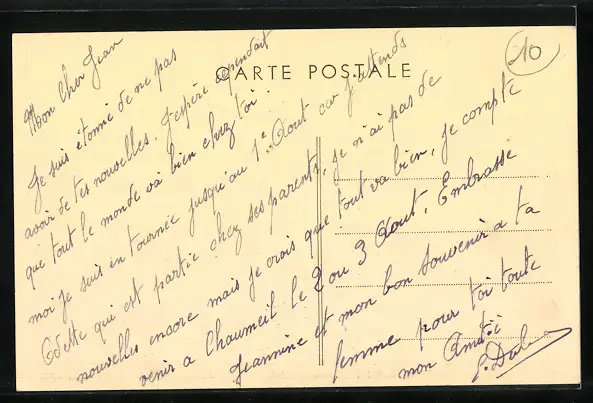 CARTE POSTALE
10
Mon Cher Jean
Je suis étonné de ne pas
avoir de tes nouvelles. J'espère cependant
que tout le monde va bien chez toi.
moi je suis en tournée jusqu'au 1er Aout car j'attends
Odette qui est partie chez ses parents, je n'ai pas de
nouvelles encore mais je crois que tout va bien, je compte
venir a Chaumeil le 2 ou 3 Aout. Embrasse
Jeannine et mon bon souvenir a ta
femme pour toi toute
mon Amitié